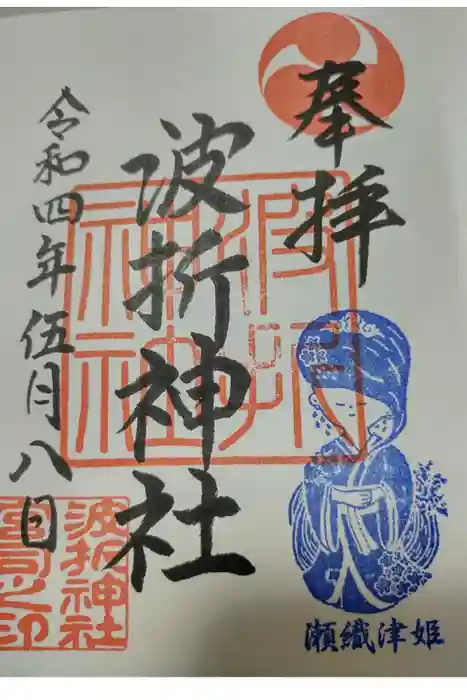 奉拝
波折神社
令和四年伍月八日
波折神社
瀬織津姫
波折神社
宮司之印